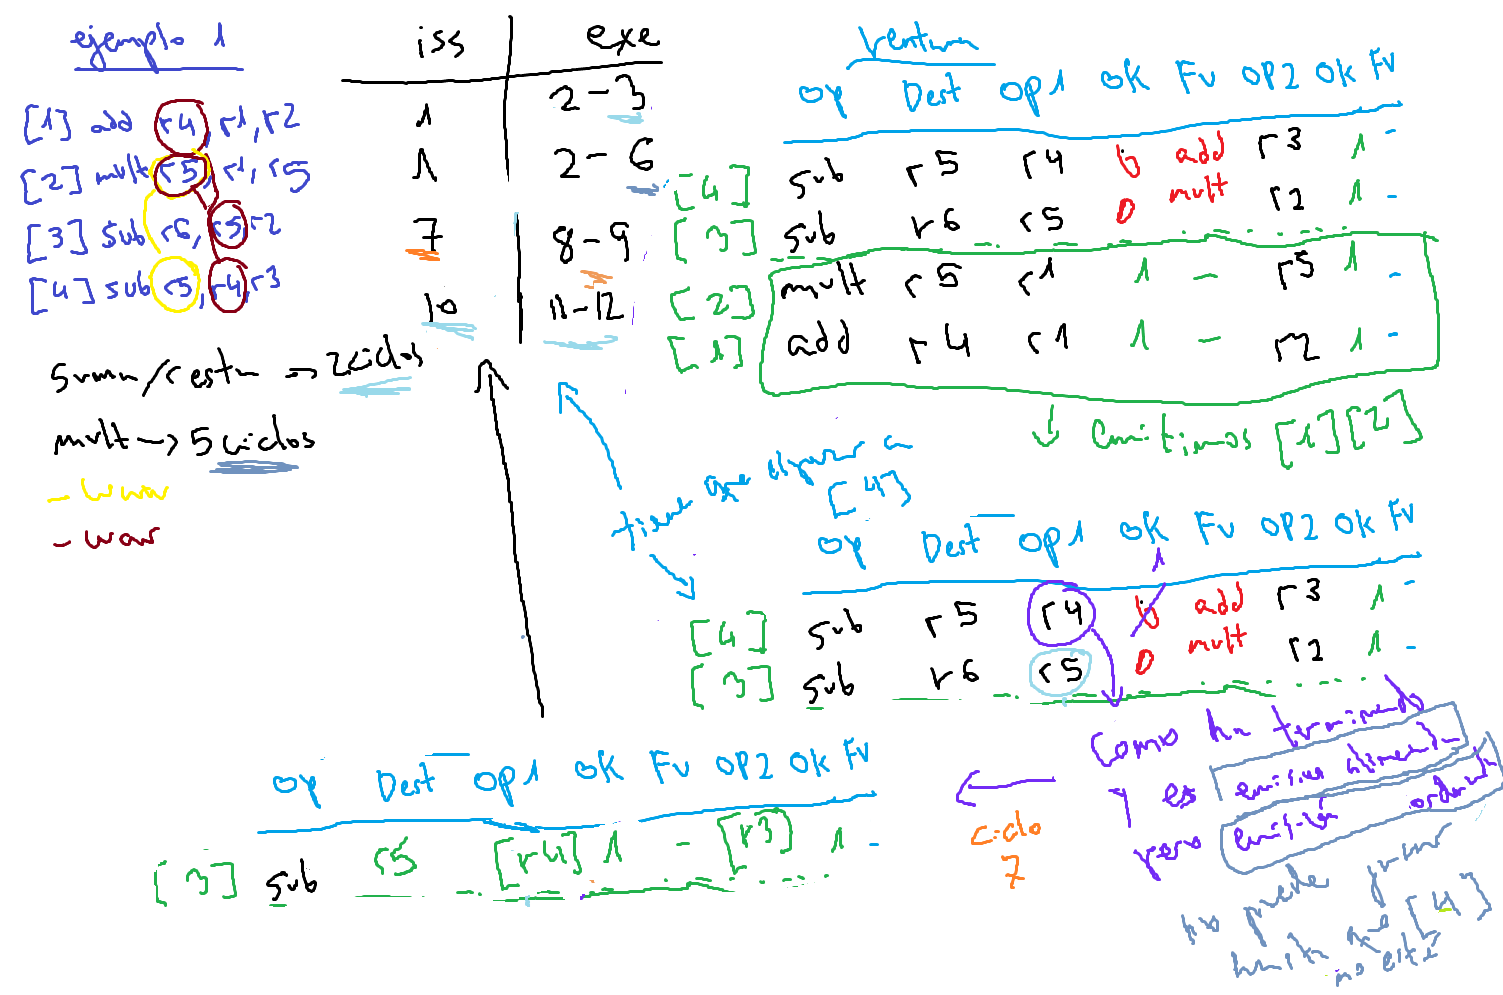 ejemplo 1
iss exe
[1] add r4, r1, r2 1 2-3
[2] mult r5, r1, r5 1 2-6
[3] sub r6, r5, r2 7 8-9
[4] sub r5, r4, r3 10 11-12
suma/resta -> 2 ciclos
mult -> 5 ciclos
- waw
- war
Ventana
op Dest op1 ok Fu OP2 OK Fu
[4] sub r5 r4 0 add r3 1 -
[3] sub r6 r5 0 mult r2 1 -
[2] mult r5 r1 1 - r5 1 -
[1] add r4 r1 1 - r2 1 -
↓ Emitimos [1][2]
tiene que esperar a
[4]
op Dest op1 ok Fu OP2 OK Fu
1
[4] sub r5 r4 0 add r3 1 -
[3] sub r6 r5 0 mult r2 1 -
Como ha terminado
y es emision alineada
pero emisión ordenada
no puede
hasta que [4]
no esté
ciclo
7
op Dest op1 ok Fu OP2 OK Fu
[3] sub r5 [r4] 1 - [r3] 1 -